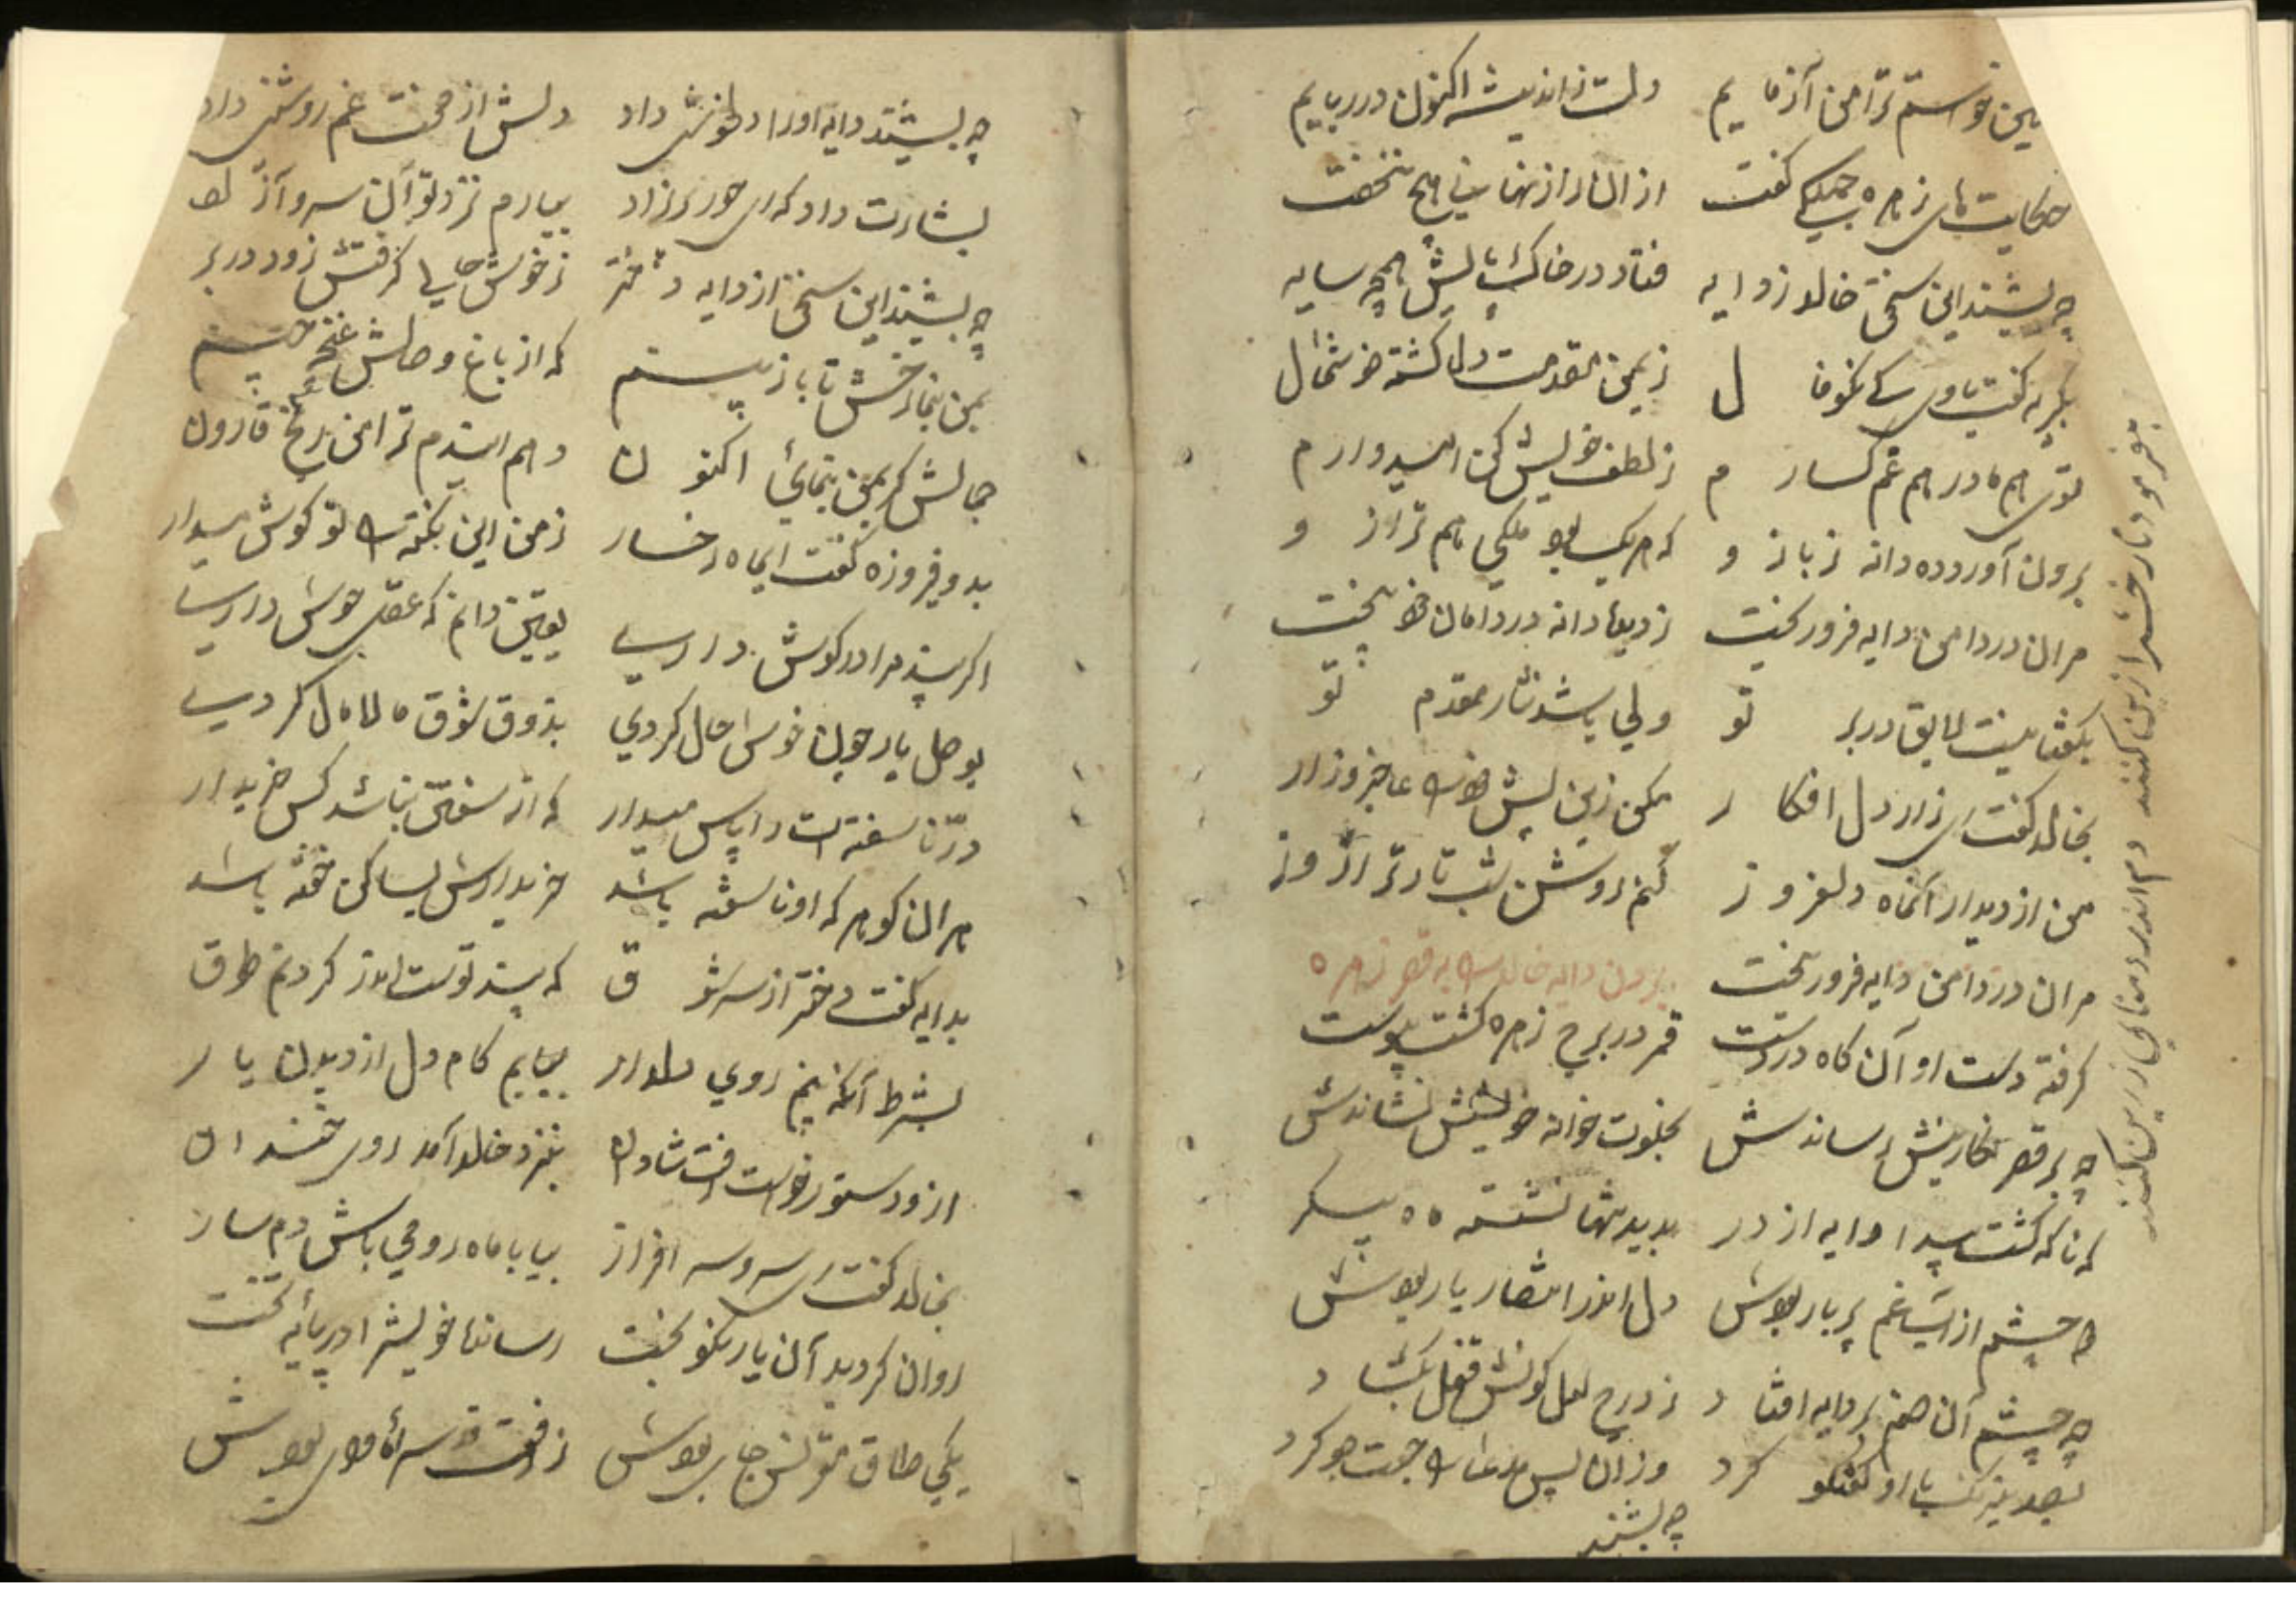 خواستم ترا من آزمایم دلت ز اندیشه اکنون در ربایم
حکایت‌های زهره جملگی گفت از آن راز نهانی هیچ ننهفت
چه بشنید این سخن خالد ز دایه فتاد در خاک پایش همچه سایه
بگریه گفت با وی کی نکوفال ز یمن مقدمت دل گشته خوشحال
توی هم مادر هم غم گسارم ز لطف خویش کن امیدوارم
برون آورده دانه ز بازو که هر یک بود ملکی هم ترازو
مر آن در دامن دایه فرو ریخت
بگفتا نیست لایق در بر تو ولی باشد نثار مقدم تو
بخالد گفت ای زار دل افکار مکن زین پیش خود را عاجز و زار
من از دیدار آنماه دلفروز کنم روشن شب تار ترا روز
مر آن در دامن دایه فرو ریخت بردن دایه خالد را به قصر زهره
گرفته دست او آن گاه در دست قمر در برج زهره گشت پیوست
چه بر قصر نگارینش رساندش بخلوت خانه خویشش نشاندش
که ناگه گشت پیدا دایه از در بدید تنها نشسته مه پیکر
دو چشم از اشک غم پر بار بودش دل اندر انتظار یار بودش
چه چشم آن صنم بر دایه افتاد ز درج لعل گونش قفل بگشاد
گفتگو کرد وز آن پس مدعا را جست جو کرد
چه بشنید
بفرمود تا رخش را زین کنند دم اندر دم نای زرین کنند
چه بشنید دایه او را دلخوشی داد دلش از محنت غم روشنی داد
بشارت داد که ای حور پریزاد بیارم نزد تو آن سرو آزاد
چه بشنید این سخن از دایه دختر ز خوش حالی گرفتش زود در بر
بمن بنما رخش تا باز بینم که از باغ وصالش غنچه چینم
جمالش گر بمن بنمائی اکنون دهم ایندم ترا من گنج قارون
بدو فیروزه گفت ایماه رخسار ز من این نکته را تو گوش میدار
اگر پند مرا در گوش داری یقین دانم که عقل هوش داری
بوصل یار چون خوش حال گردی بذوق شوق مالامال گردی
در ناسفته است را پاس میدار که از سفتن نباشد کس خریدار
هر آن گوهر که او ناسفته باشد خریدارش بسا کن خفته باشد
بدایه گفت دختر از سر شوق که پند توست اندر گردنم طوق
بشرط آنکه بینم روی دلدار بیابم کام دل از دیدن یار
از و دستور خواست رفت شادان بنزد خالد آمد روی خندان
بخالد گفت ای سرو سرافراز بیا با ماه رومی باش دمساز
روان گردید آن یار نکو بخت رساند خویش را در پایه تخت
یکی طاق مقرنس جای بودش